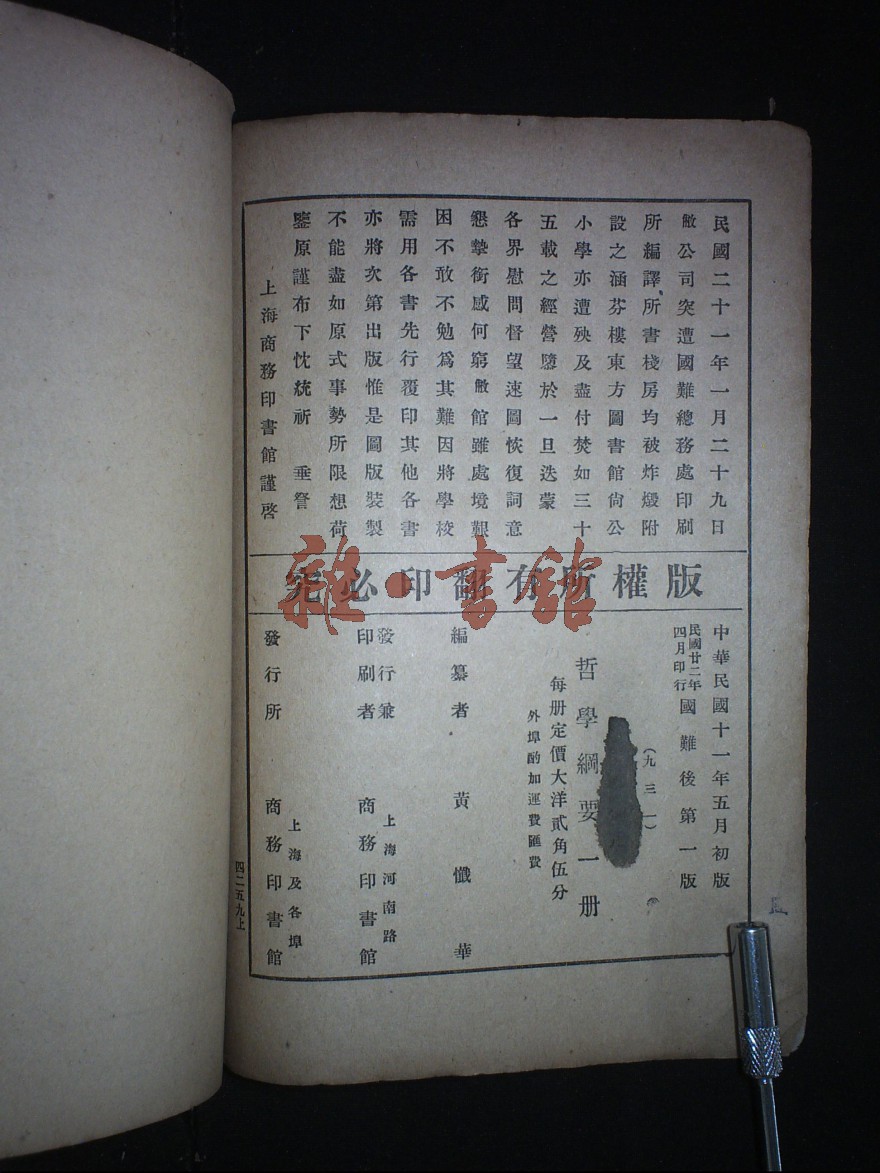 民國二十一年一月二十九日
敝公司突遭國難總務處印刷
所編譯所書棧房均被炸燬附
設之涵芬樓東方圖書館尙公
小學亦遭殃及盡付焚如三十
五載之經營隳於一旦迭蒙
各界慰問督望速圖恢復詞意
懇摯銜感何窮敝館雖處境艱
困不敢不勉爲其難因將學校
需用各書先行覆印其他各書
亦將次第出版惟是圖版裝製
不能盡如原式事勢所限想荷
鑒原謹布下忱統祈 垂詧
上海商務印書館謹啓
版權所有翻印必究
中華民國十一年五月初版
民國廿二年四月印行國難後第一版
(九三一)
哲學綱要一册
每册定價大洋貳角伍分
外埠酌加運費匯費
編纂者 黃懺華
發行兼印刷者 上海河南路 商務印書館
發行所 上海及各埠 商務印書館
四二五九上
雜·書館